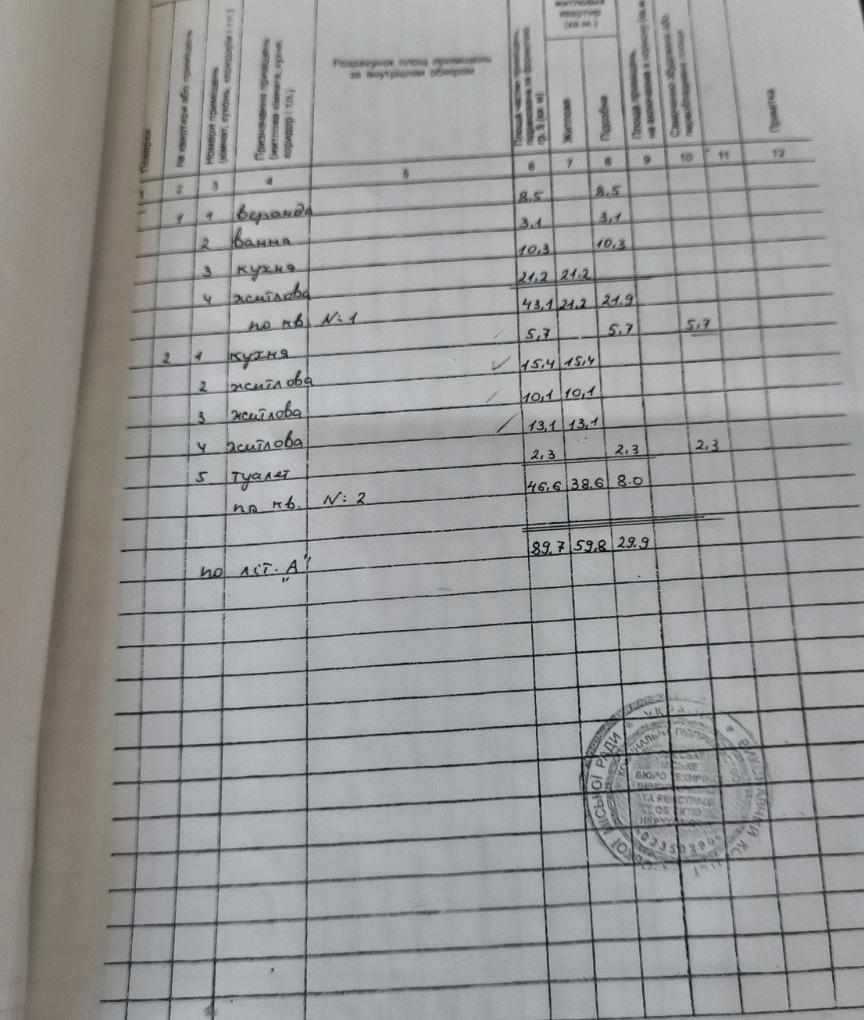 Поверхи
№ квартири або приміщень
Номери приміщень (кімнат, кухонь, коридорів і т.п.)
Призначення приміщень (житлова кімната, кухня, коридор і т.п.)
Розрахунок площ приміщень за внутрішнім обміром
квартир (кв.м.)
Житлова
Підсобна
Примітка
2 3 4 5 6 7 8 9 10 11 12
1 1 веранда 8.5 8.5
2 ванна 3,1 3,1
3 кухня 10,3 10.3
4 житлова 21,2 21.2
по кв. N: 1 43,1 21.2 21.9
2 1 кухня 5,7 5,7 5,7
2 житлова 15,4 15,4
3 житлова 10,1 10,1
4 житлова 13,1 13,1
5 туалет 2,3 2,3 2,3
по кв. N: 2 46,6 38.6 8.0
по літ. „А" 89.7 59.8 29.9
МІСЬКОЇ РАДИ
БЮРО
ТА РЕЄСТРАЦІ